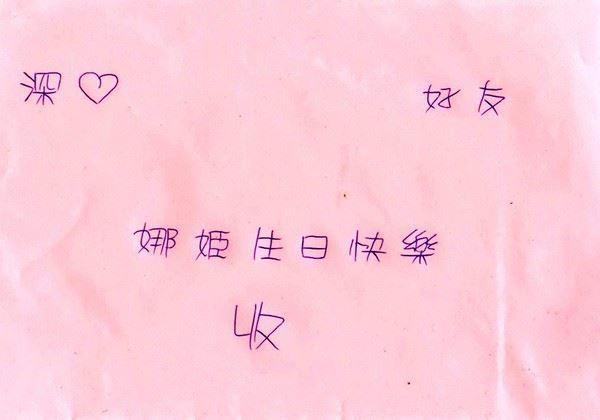 深♡ 好友
娜姬生日快樂
收